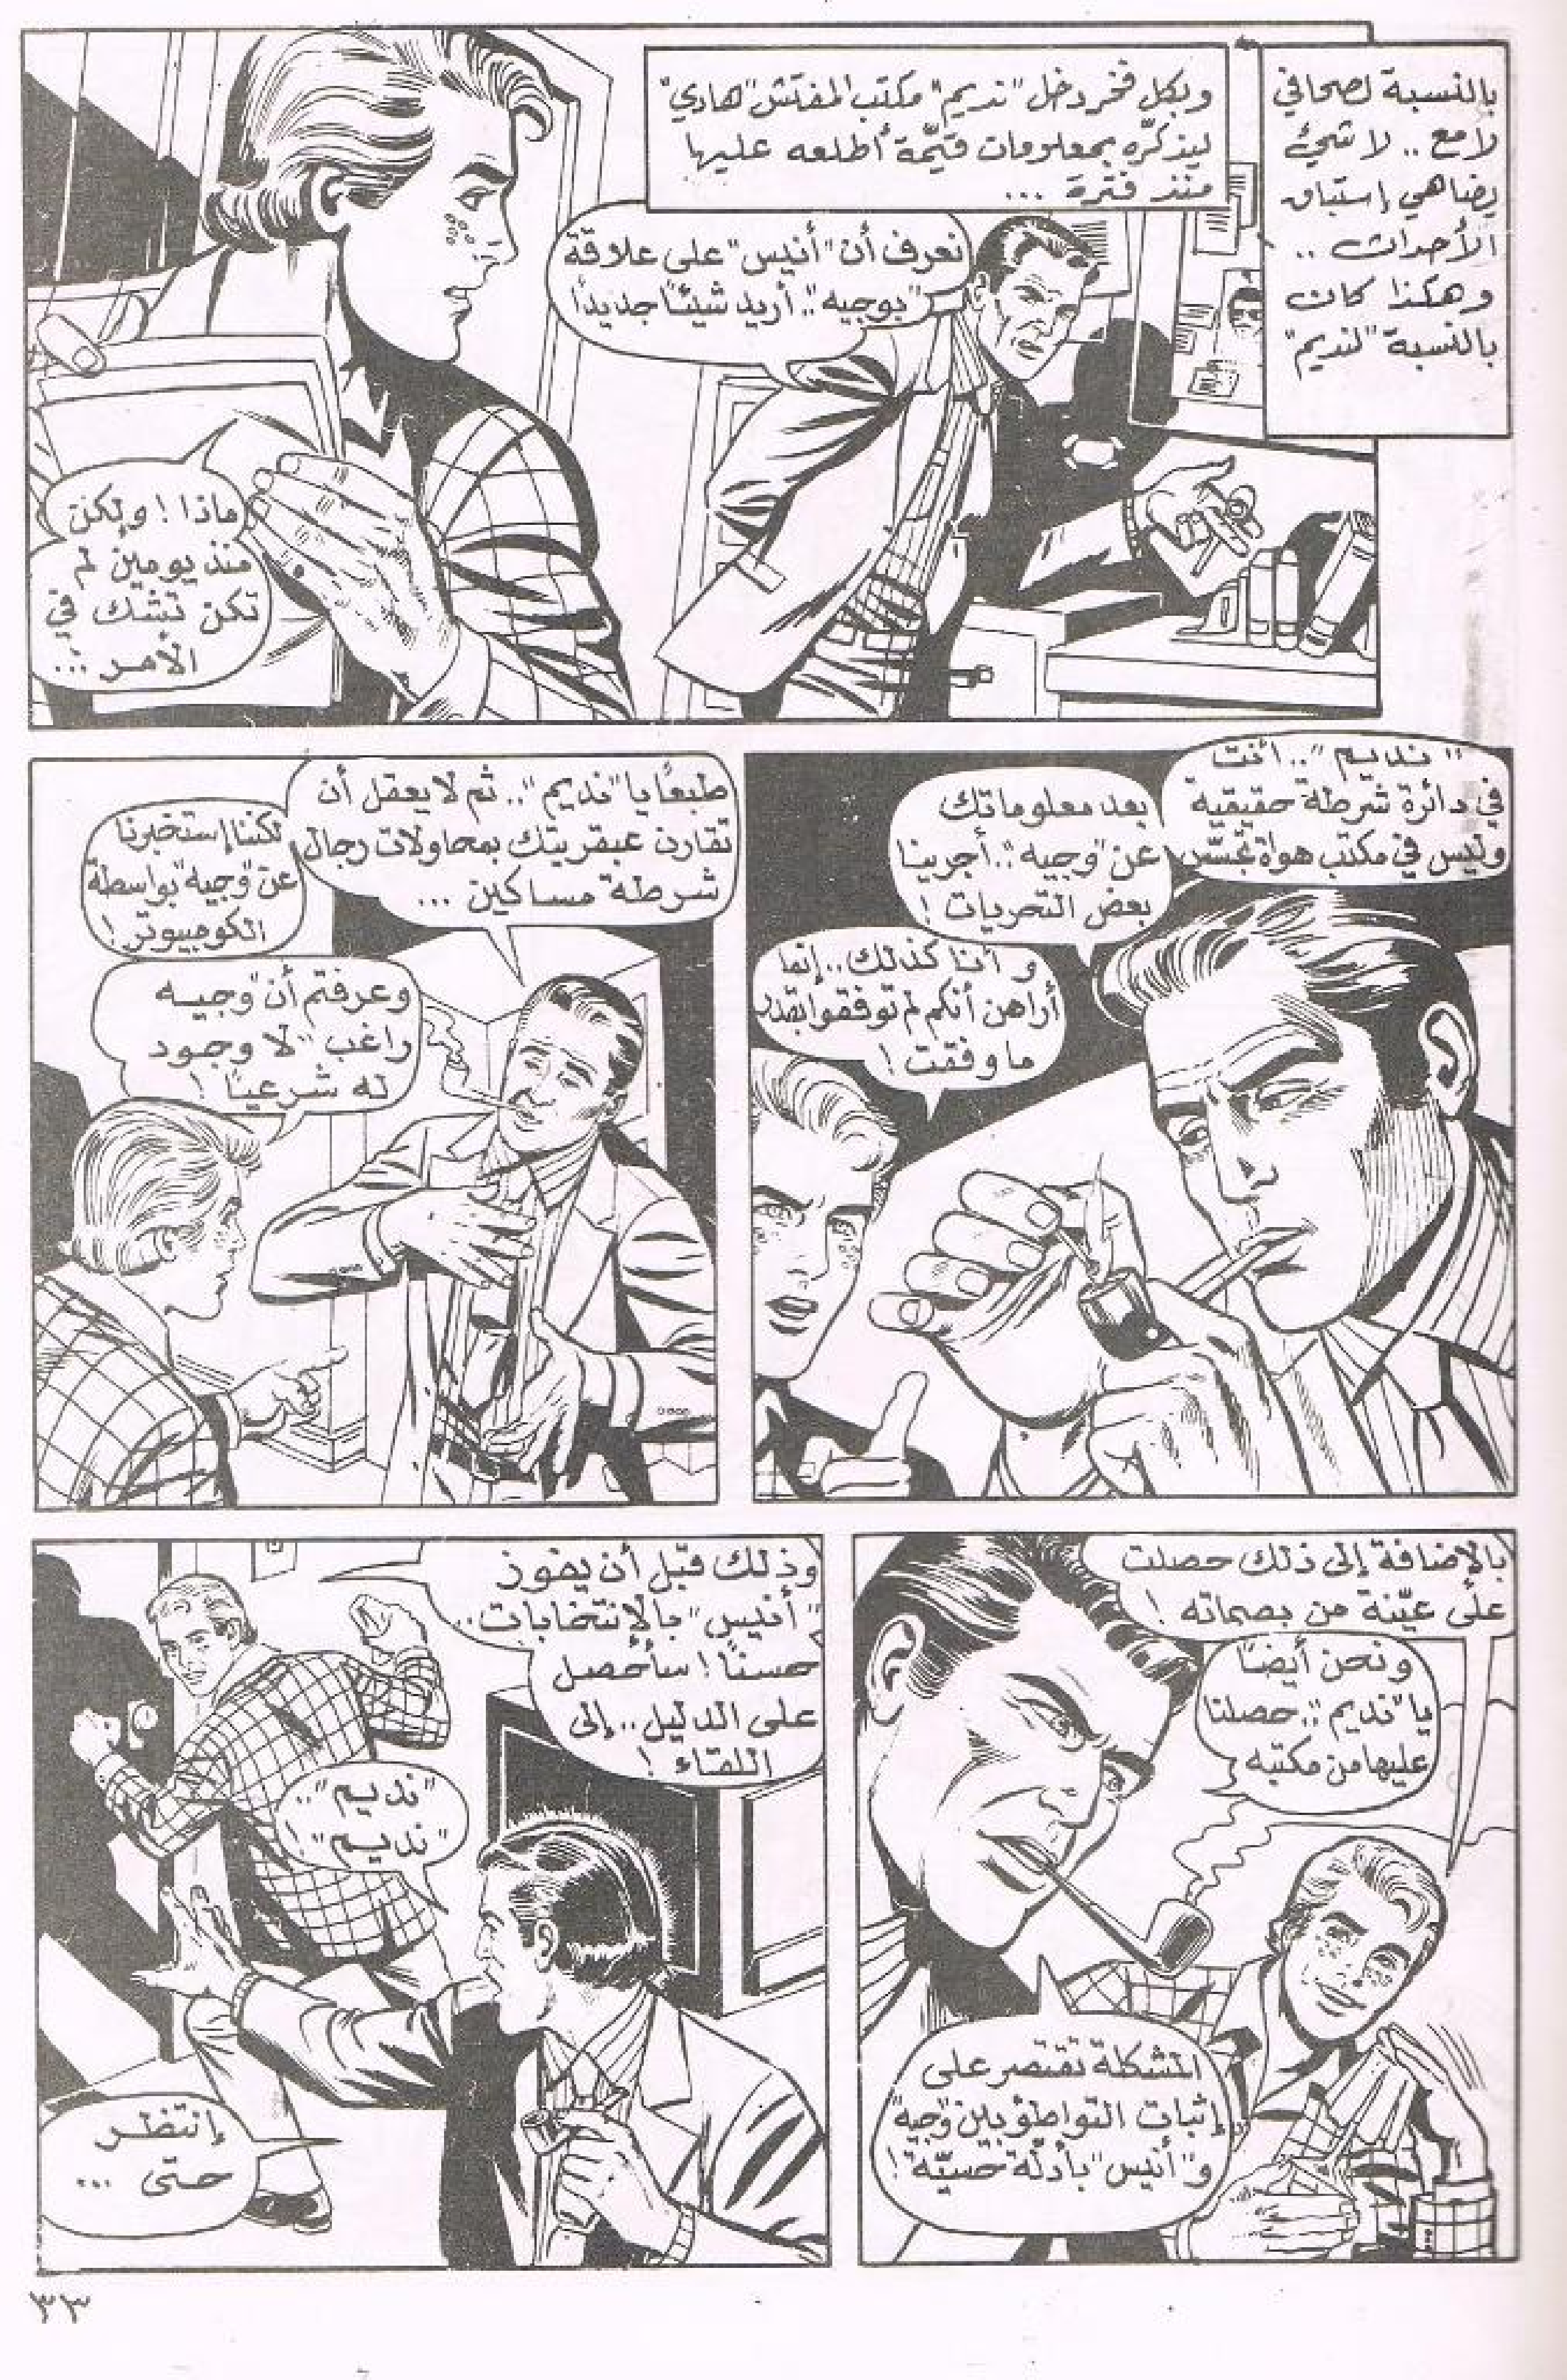 بالنسبة لصحافي
لامع .. لا شيء
يضاهي إستباق
الأحداث ..
وهكذا كان
بالنسبة "لنديم"
وبكل فخر دخل "نديم" مكتب المفتش "هادي"
ليذكّره بمعلومات قيّمة أطلعه عليها
منذ فترة ...
نعرف أن "أنيس" على علاقة
"بوجيه".. أريد شيئًا جديدًا
ماذا! ولكن
منذ يومين لم
تكن تشك في
الأمر ...
"نديم".. أنت
في دائرة شرطة حقيقية
وليس في مكتب هواة تجسّس
بعد معلوماتك
عن "وجيه".. أجرينا
بعض التحريات!
و أنا كذلك.. إنما
أراهن أنكم لم توفقوا بقدر
ما وفقت!
طبعًا يا "نديم".. ثم لا يعقل أن
تقارن عبقريتك بمحاولات رجال
شرطة مساكين ...
لكننا إستخبرنا
عن "وجيه" بواسطة
الكومبيوتر!
وعرفتم أن "وجيه
راغب" لا وجود
له شرعيًا!
بالإضافة إلى ذلك حصلت
على عيّنة من بصماته!
ونحن أيضًا
يا "نديم".. حصلنا
عليها من مكتبه
المشكلة تقتصر على
إثبات التواطؤ بين "وجيه"
و"أنيس" بأدلّة حسيّة!
وذلك قبل أن يفوز
"أنيس" بالإنتخابات..
حسنًا! سأحصل
على الدليل.. إلى
اللقاء!
"نديم"..
"نديم"!
إنتظر
حتى ...
٣٣